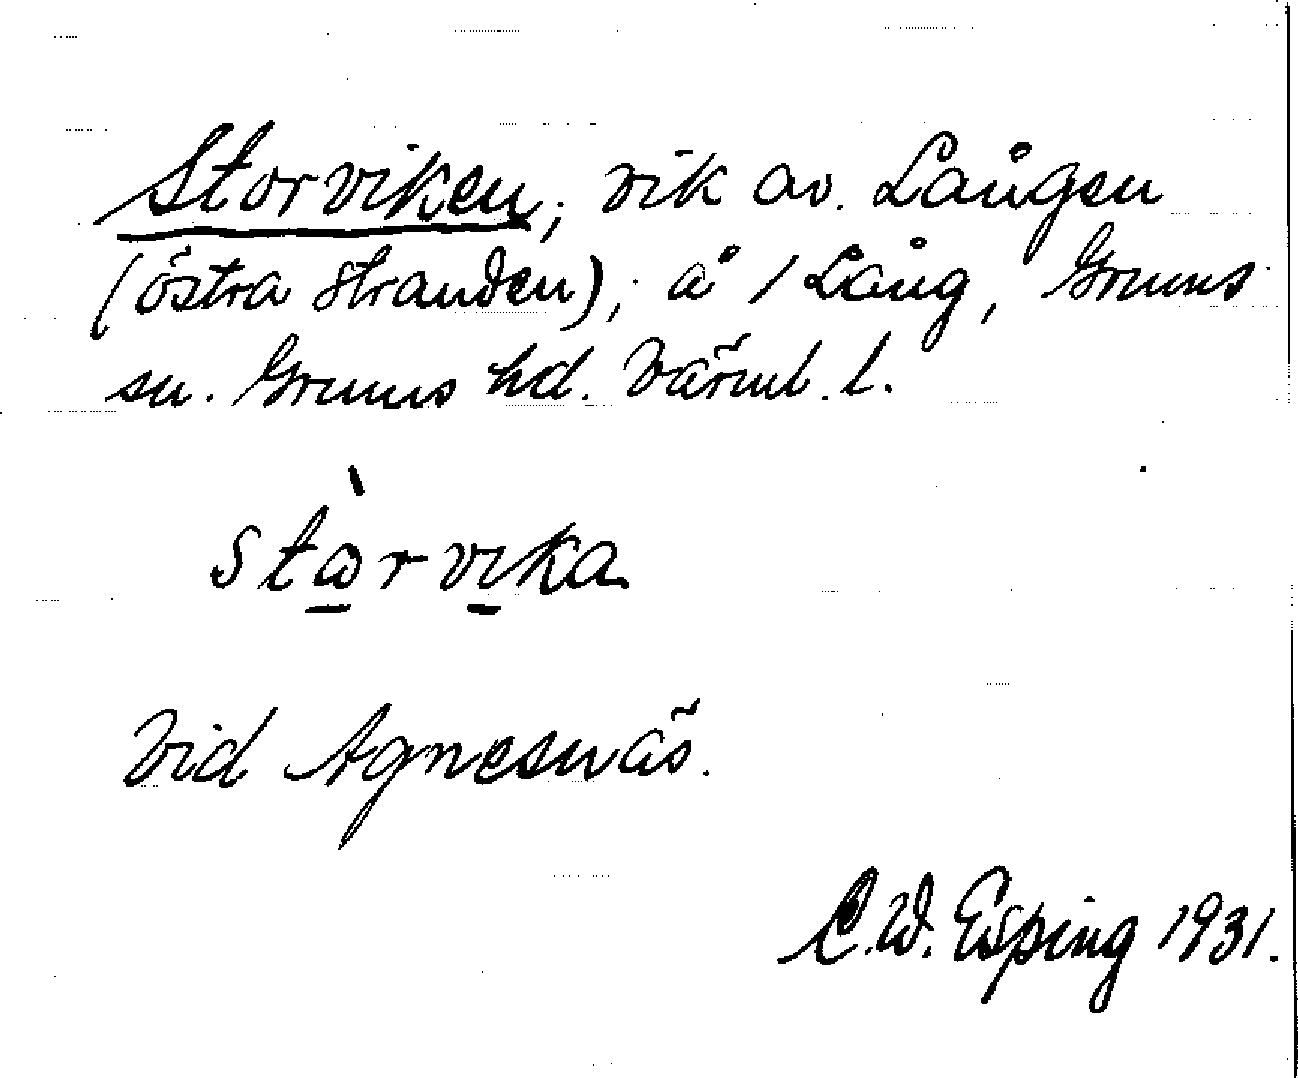 Storviken; vik av Lången
(östra stranden); å 1 Lång, Grums
sn. Grums hd. Värml. l.
stωrvika
Vid Agnesnäs.
C.W. Esping 1931.